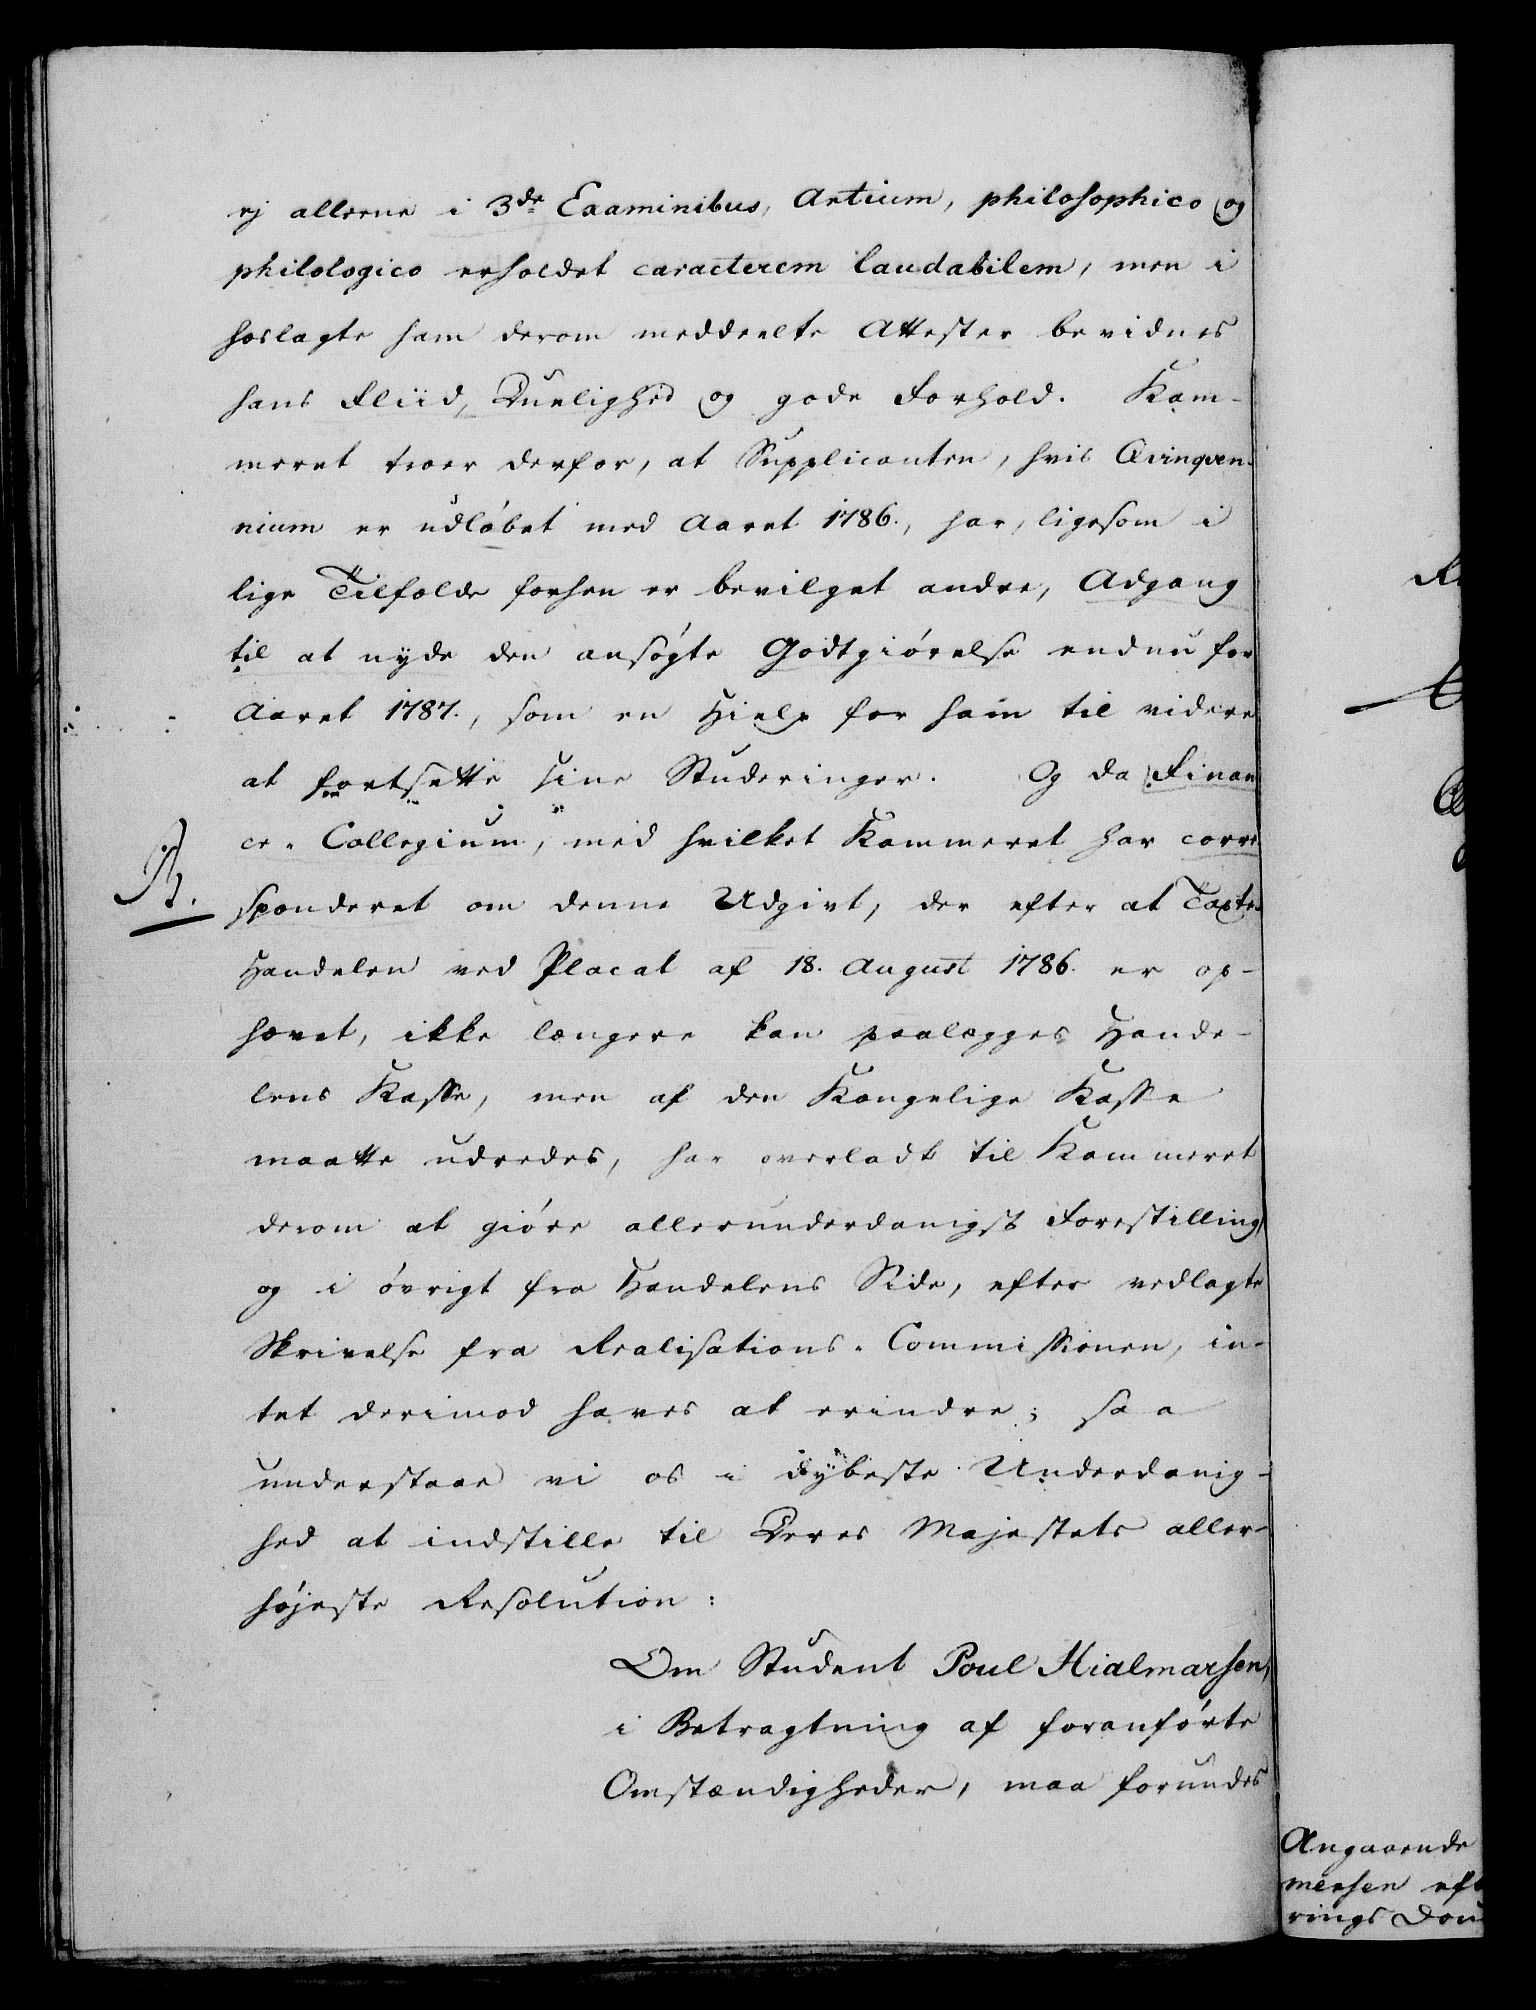 ej alleene i 3de Examinibus, Artium, philosophico og
philologico erholdet caracterem laudabilem, men i
hoslagte ham derom meddeelte Attester bevidnes
hans Fliid, Duelighed og gode Forhold. Kam-
meret troer derfor, at Supplicanten, hvis Qvinqven-
nium er udløbet med Aaret 1786., har, ligesom i
lige Tilfælde forhen er bevilget andre, Adgang
til at nyde den ansøgte Godtgiørelse endnu for
Aaret 1787., som en Hielp for ham til videre
at fortsætte sine Studeringer. Og da Finan
ce-Collegium, med hvilket Kammeret har corre
B.
sponderet om denne Udgivt, der efter at Taxte
Handelen ved Placat af 18. August 1786. er op-
hævet, ikke længere kan paalægges Hande-
lens Kasse, men af den Kongelige Kasse
maatte udredes, har overladt til Kammeret
derom at giøre allerunderdanigst Forestilling,
og i øvrigt fra Handelens Side, efter vedlagte
Skrivelse fra Realisations-Commissionen, in-
tet derimod haves at erindre; saa
understaae vi os i dybeste Underdanig-
hed at indstille til Deres Majestets aller-
højeste Resolution:
Om Student Poul Hialmarsen,
i Betragtning af foranførte
Omstændigheder, maa forundes
Angaaende
mersen eft
rings Dou